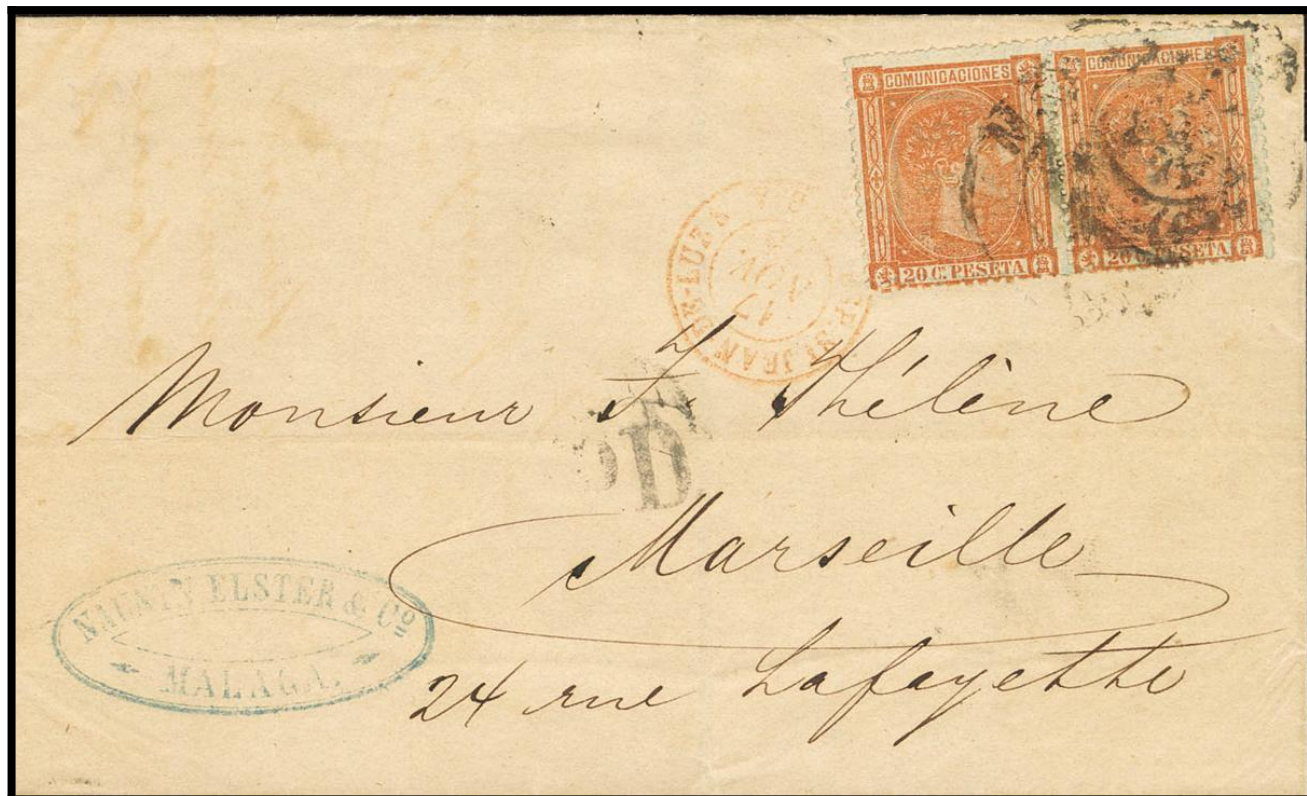 COMUNICACIONES
20 C. PESETA
COMUNICACIONES
20 C. PESETA
17
NOV
ST JEAN-DE-LUZ
PD
Monsieur F. Thélène
Marseille
24 rue Lafayette
ELSTER & Cº
MALAGA.